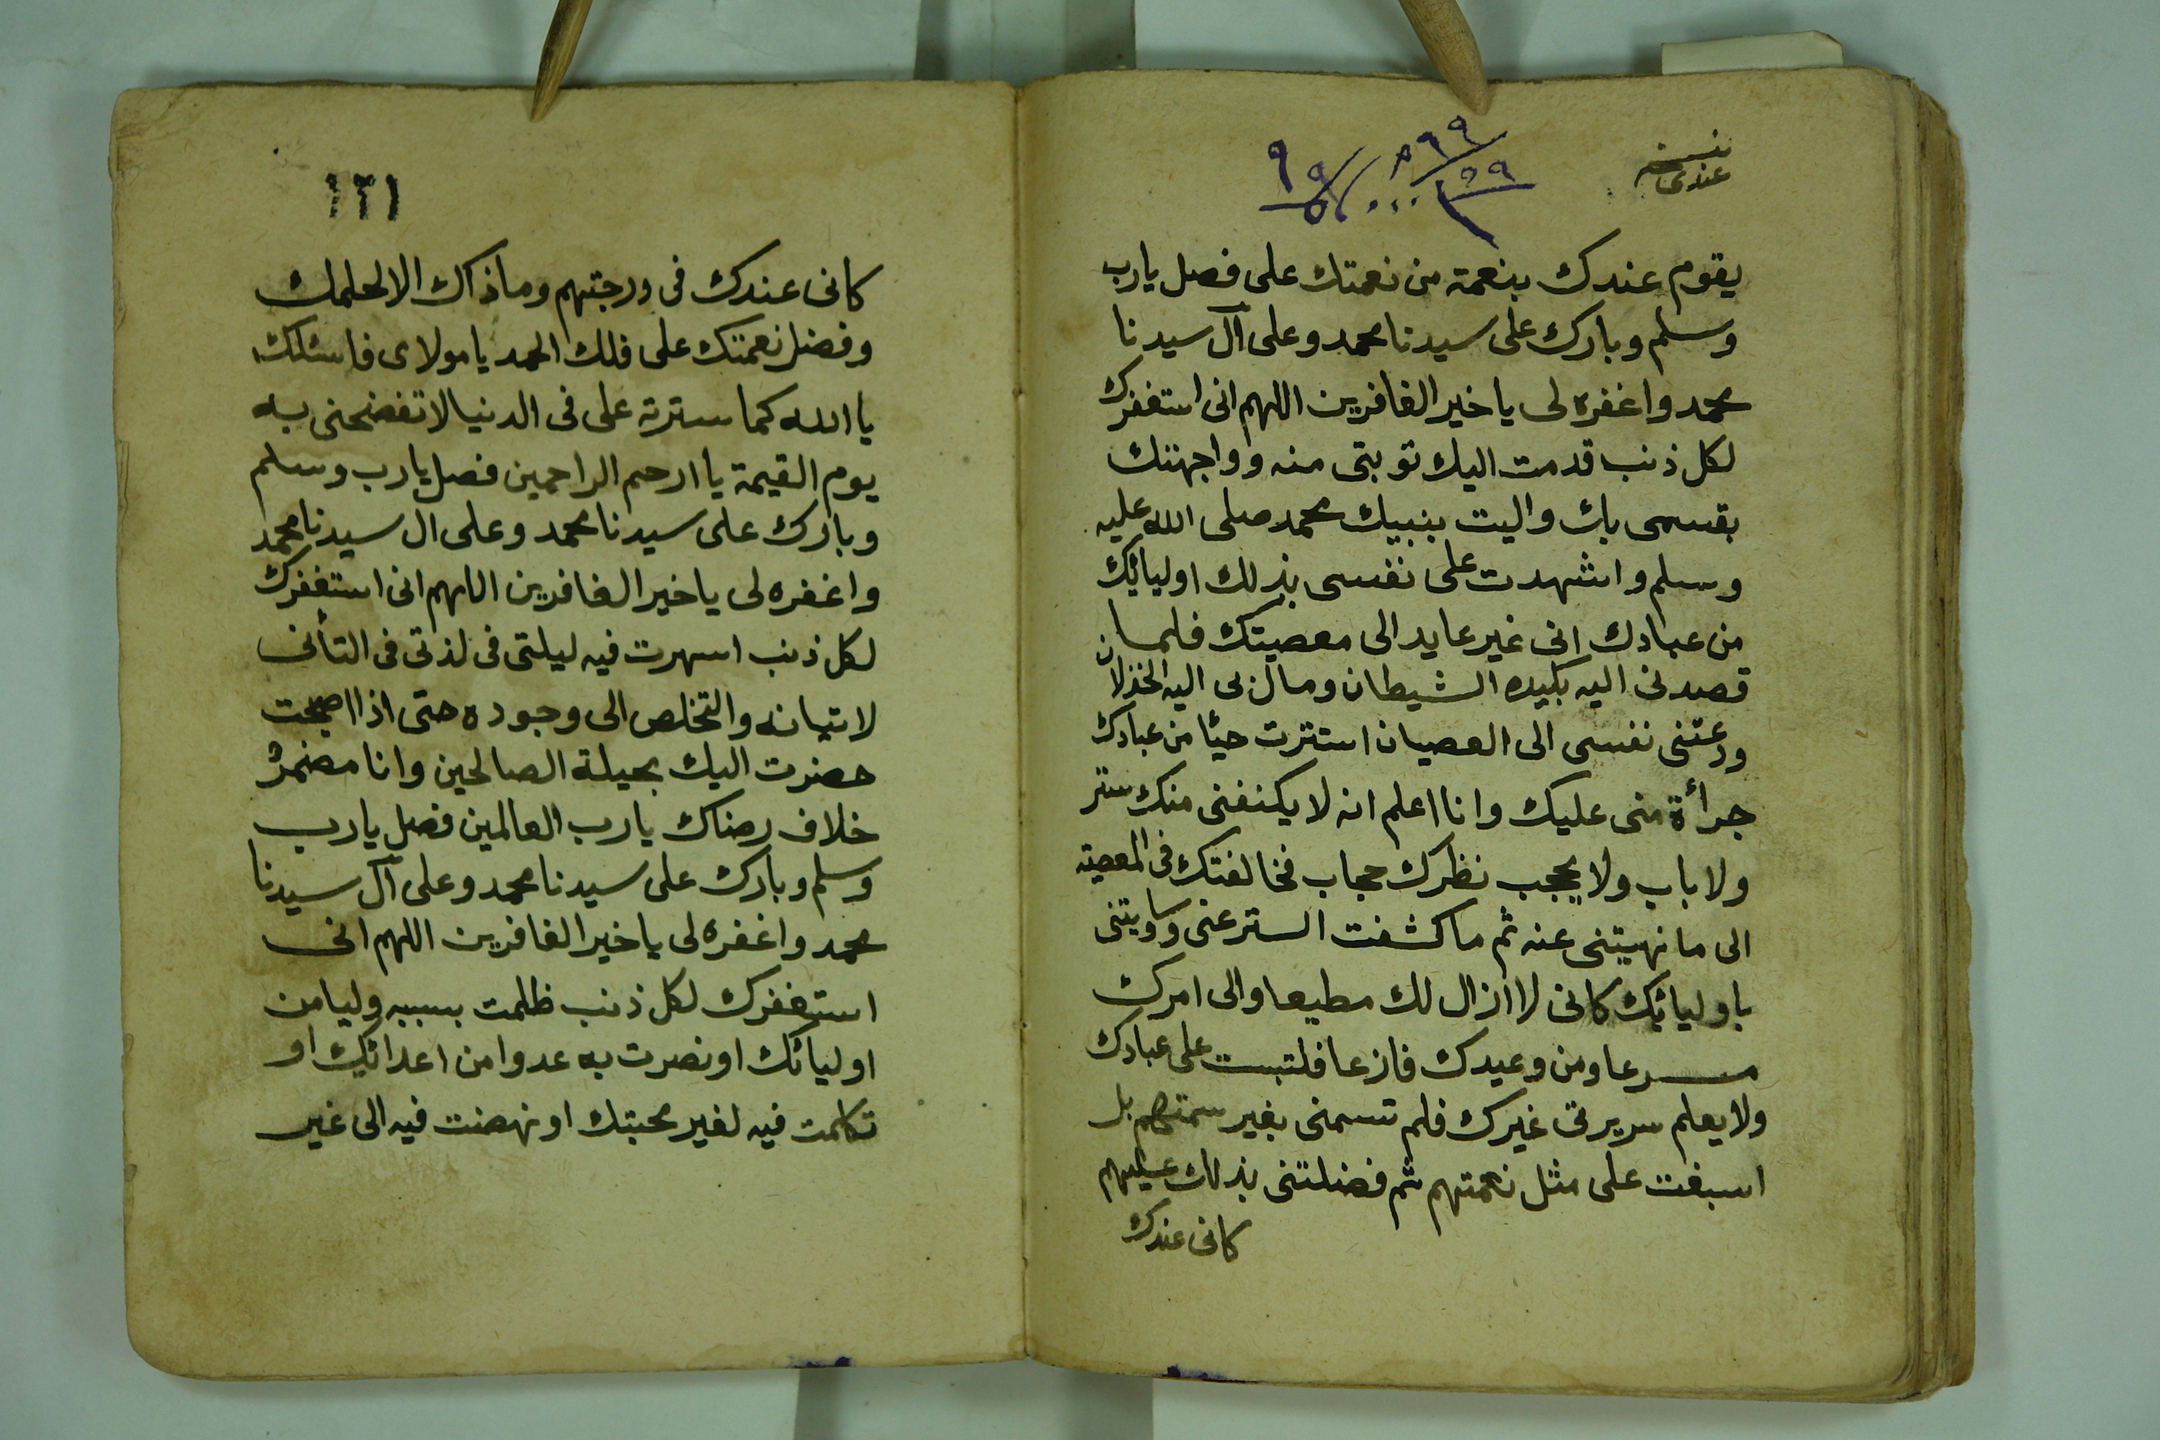 عندى
يقوم عندك بنعمة من نعمتك على فصل يارب
وسلم وبارك على سيدنا محمد وعلى آل سيدنا
محمد واغفره لى ياخير الغافرين اللهم انى استغفرك
لكل ذنب قدمت اليك توبتى منه وواجهتك
بقسمى بك واليت بنبيك محمد صلى الله عليه
وسلم واشهدت على نفسى بذلك اوليائك
من عبادك انى غير عايد الى معصيتك فلما ان
قصدنى اليه بكيده الشيطان ومال بى اليه الخذلان
ودعتنى نفسى الى العصيان استترت حيئا من عبادك
جرأة منى عليك وانا اعلم انه لا يكنفنى منك ستر
ولا باب ولا يحجب نظرك حجاب فخالفتك فى المعصية
الى ما نهيتنى عنه ثم ما كشفت الستر عنى وساويتنى
باوليائك كانى لا ازال لك مطيعا والى امرك
مسرعا ومن وعيدك فازعا فلتبست على عبادك
ولا يعلم سريرتى غيرك فلم تسمنى بغير سمتهم بل
اسبغت على مثل نعمتهم ثم فضلتنى بذلك عليهم
كانى عندك
١٢١
كانى عندك فى درجتهم وماذاك الا لحلمك
وفضل نعمتك على فلك الحمد يا مولاى فاسئلك
يا الله كما سترته على فى الدنيا لا تفضحنى به
يوم القيمة يا ارحم الراحمين فصل يارب وسلم
وبارك على سيدنا محمد وعلى ال سيدنا محمد
واغفره لى ياخير الغافرين اللهم انى استغفرك
لكل ذنب اسهرت فيه ليلتى فى لذتى فى التأنى
لاتيانه والتخلص الى وجوده حتى اذا اصبحت
حضرت اليك بحيلة الصالحين وانا مضمر
خلاف رضاك يارب العالمين فصل يارب
وسلم وبارك على سيدنا محمد وعلى آل سيدنا
محمد واغفره لى ياخير الغافرين اللهم انى
استغفرك لكل ذنب ظلمت بسببه وليا من
اوليائك او نصرت به عدوا من اعدائك او
تكلمت فيه لغير محبتك او نهضت فيه الى غير